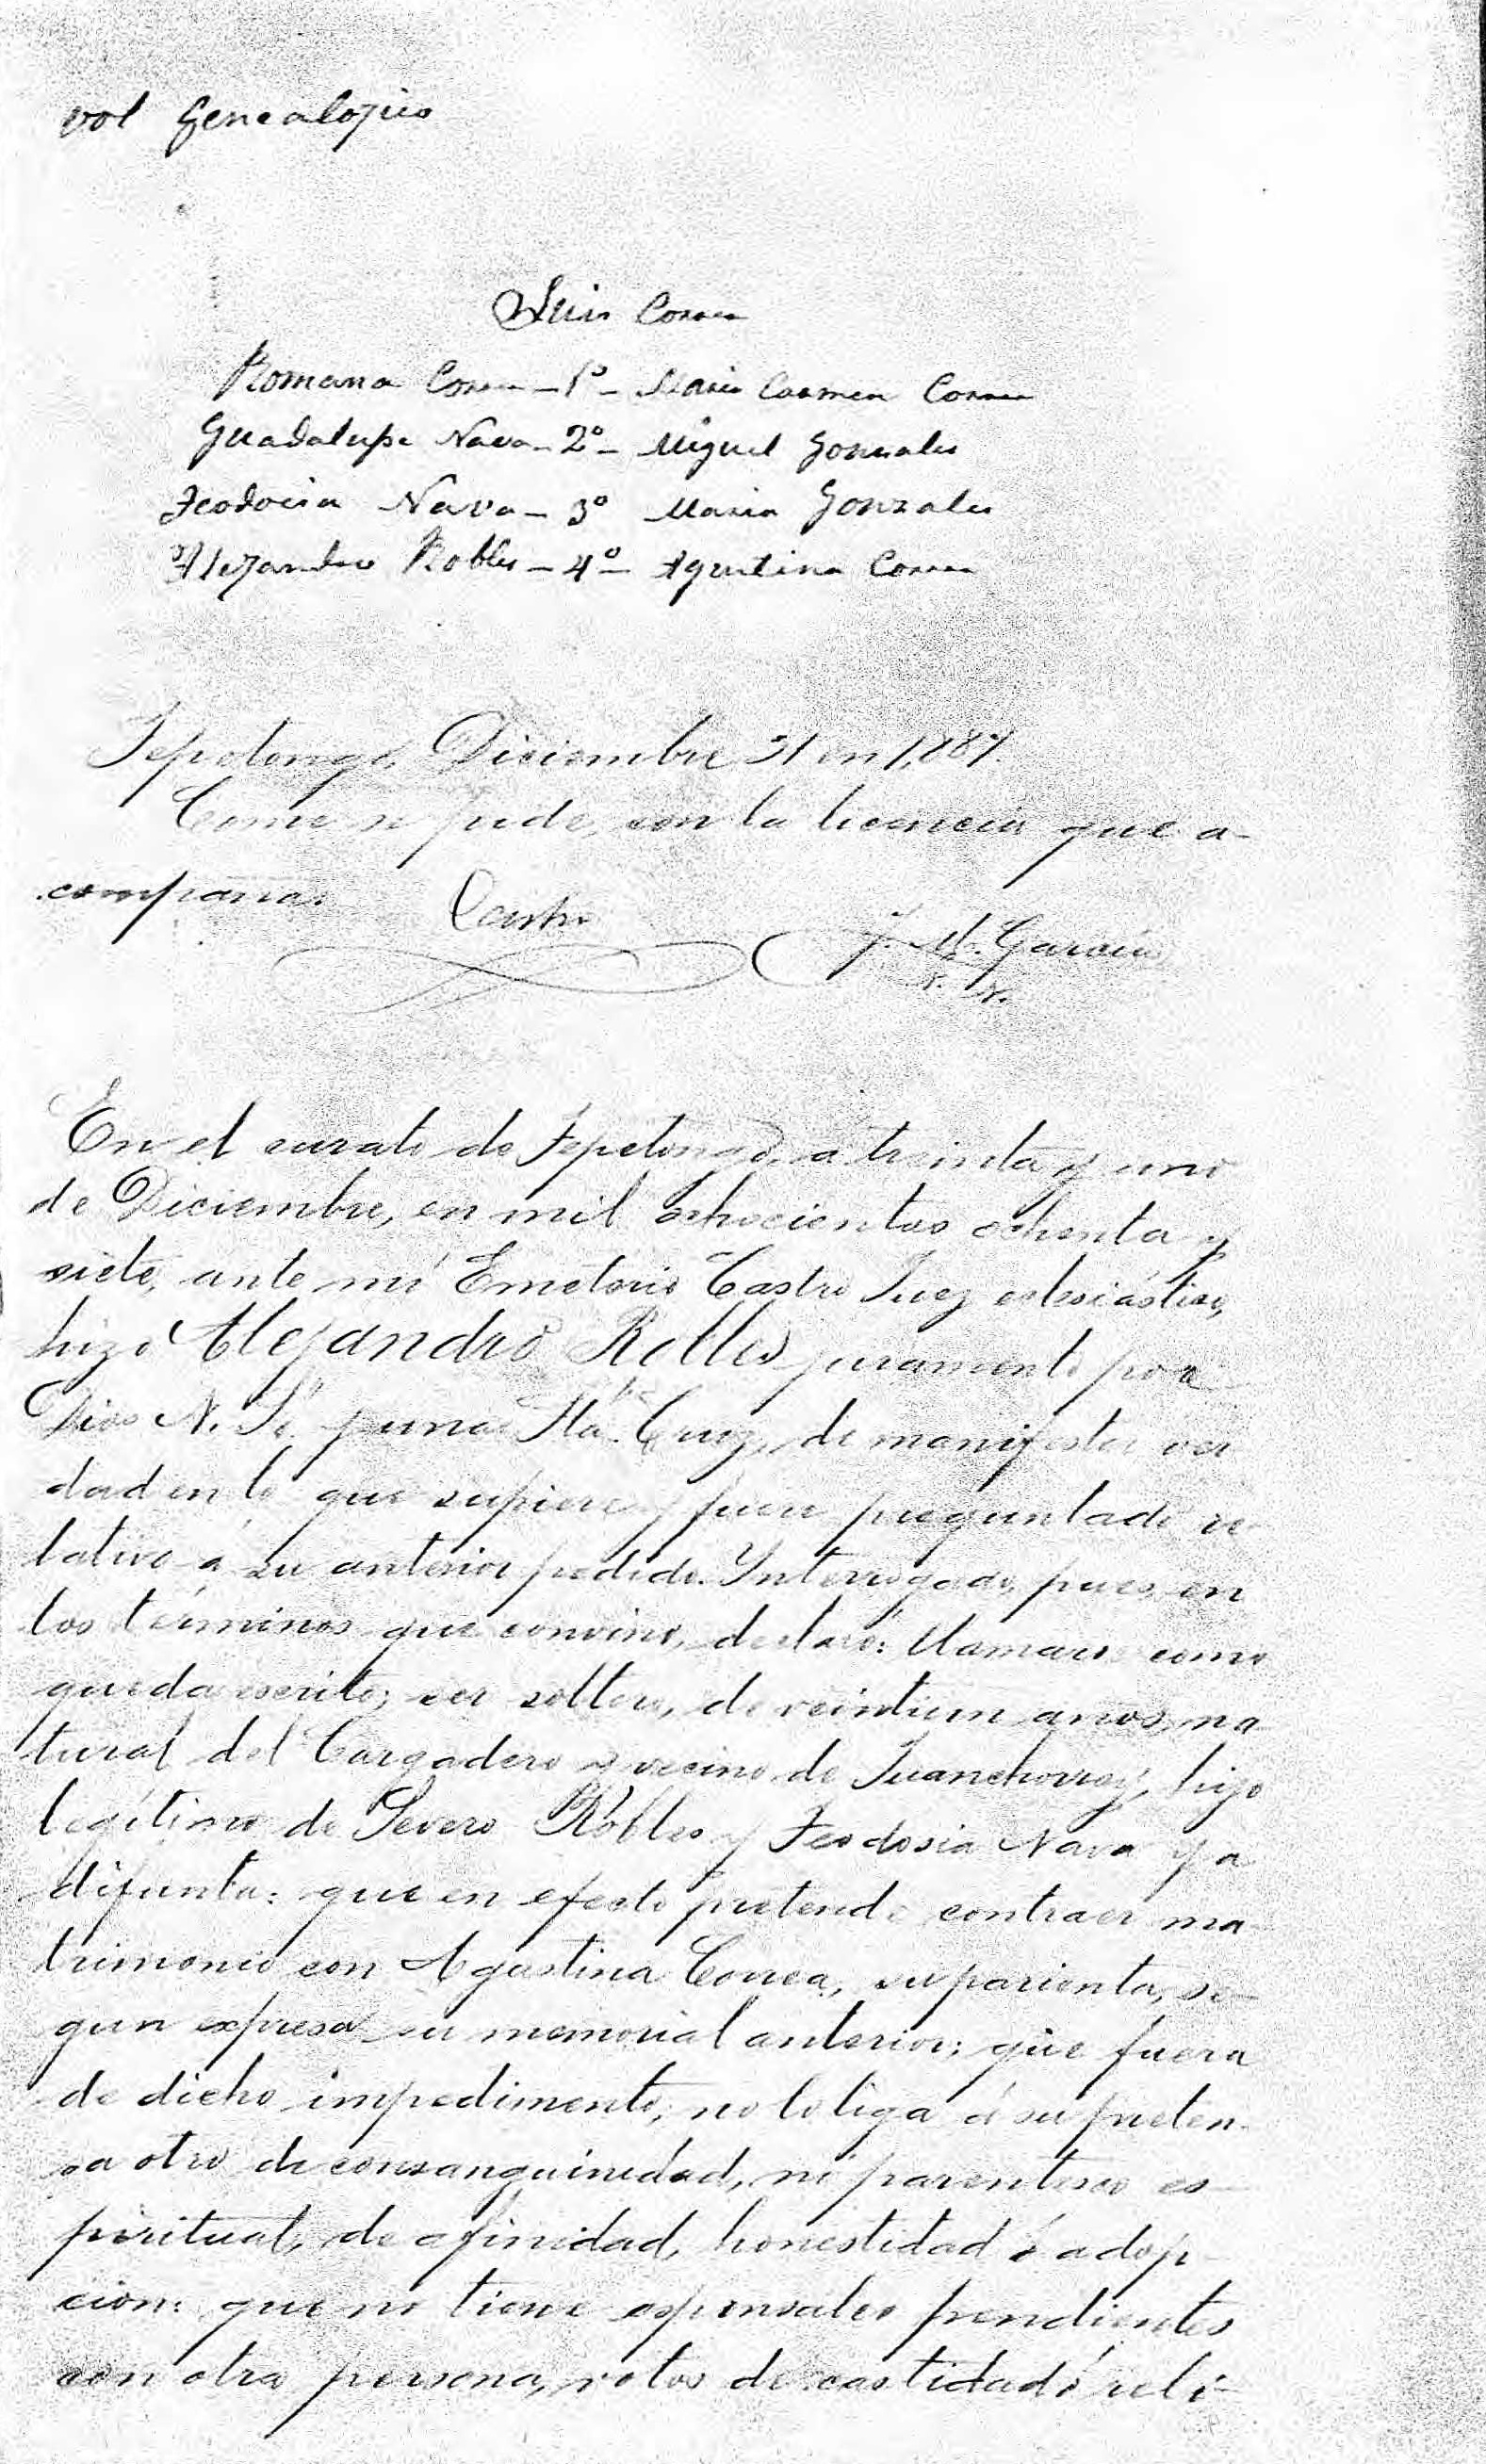 vol Genealogico
Luis Correa
Romana Correa - 1º - Maria Carmen Correa
Guadalupe Nava - 2º - Miguel Gonzales
Teodocia Nava - 3º Maria Gonzales
Alejandro Robles - 4º - Agustina Correa
Tepetongo, Diciembre 31 en 1,887.
Como se pide, con la licencia que a-
compaña.
Castro
J. M. Garcia
N. N.
En el curato de Tepetongo, a treinta y uno
de Diciembre, en mil ochocientos ochenta y
siete, ante mí Emeterio Castro Juez eclesiástico,
hizo Alejandro Robles juramento por
Dios N. Sr. y una Sta. Cruz, de manifestar ver
dad en lo que supiere y fuere preguntado re-
lativo á su anterior pedido. Interrogado, pues, en
los términos que convino, declaró: llamarse como
queda escrito; ser soltero, de veintiun anos, na
tural del Cargadero y vecino de Juanchorrey, hijo
legítimo de Severo Robles y Teodosia Nava ya
difunta: que en efecto pretende contraer ma-
trimonio con Agustina Correa, su parienta, se-
gun expresa su memorial anterior; que fuera
de dicho impedimento, no lo liga á su preten-
sa otro de consanguinidad, ni parentesco es-
piritual, de afinidad, honestidad ó adop-
cion: que no tiene esponsales pendientes
con otra persona, votos de castidad ó reli-